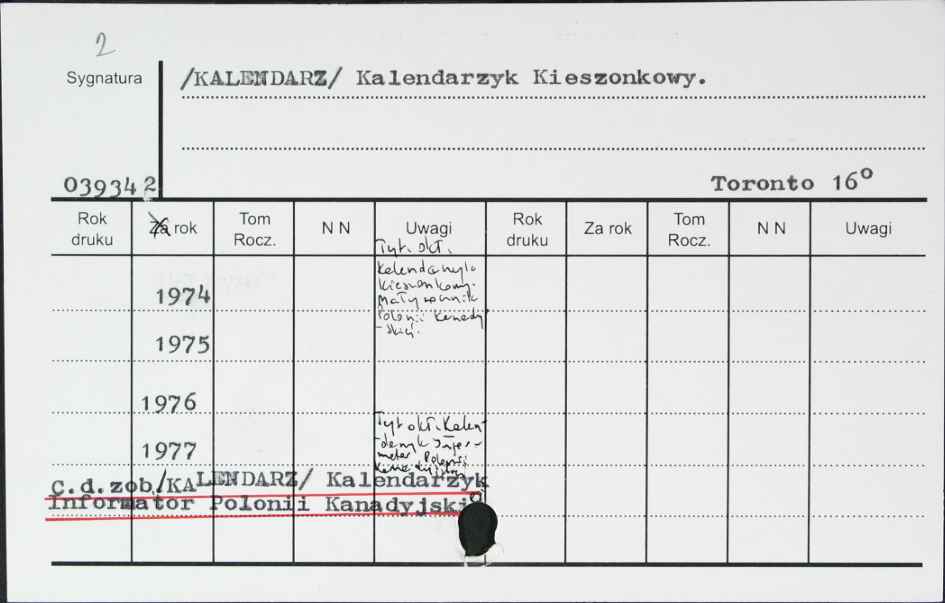 2
Sygnatura
/KALENDARZ/ Kalendarzyk Kieszonkowy.
039342
Toronto 16°
Rok druku
Za rok
Tom Rocz.
N N
Uwagi
Rok druku
Za rok
Tom Rocz.
N N
Uwagi
Tyt. okł.
Kalendarzyk
kieszonkowy.
Mały rocznik
Polonii Kanady
-skiej.
1974
1975
1976
Tyt okł. Kalen-
-darzyk Infor-
mator Polonii
1977
C.d.zob./KALENDARZ/ Kalendarzyk
Informator Polonii Kanadyjski